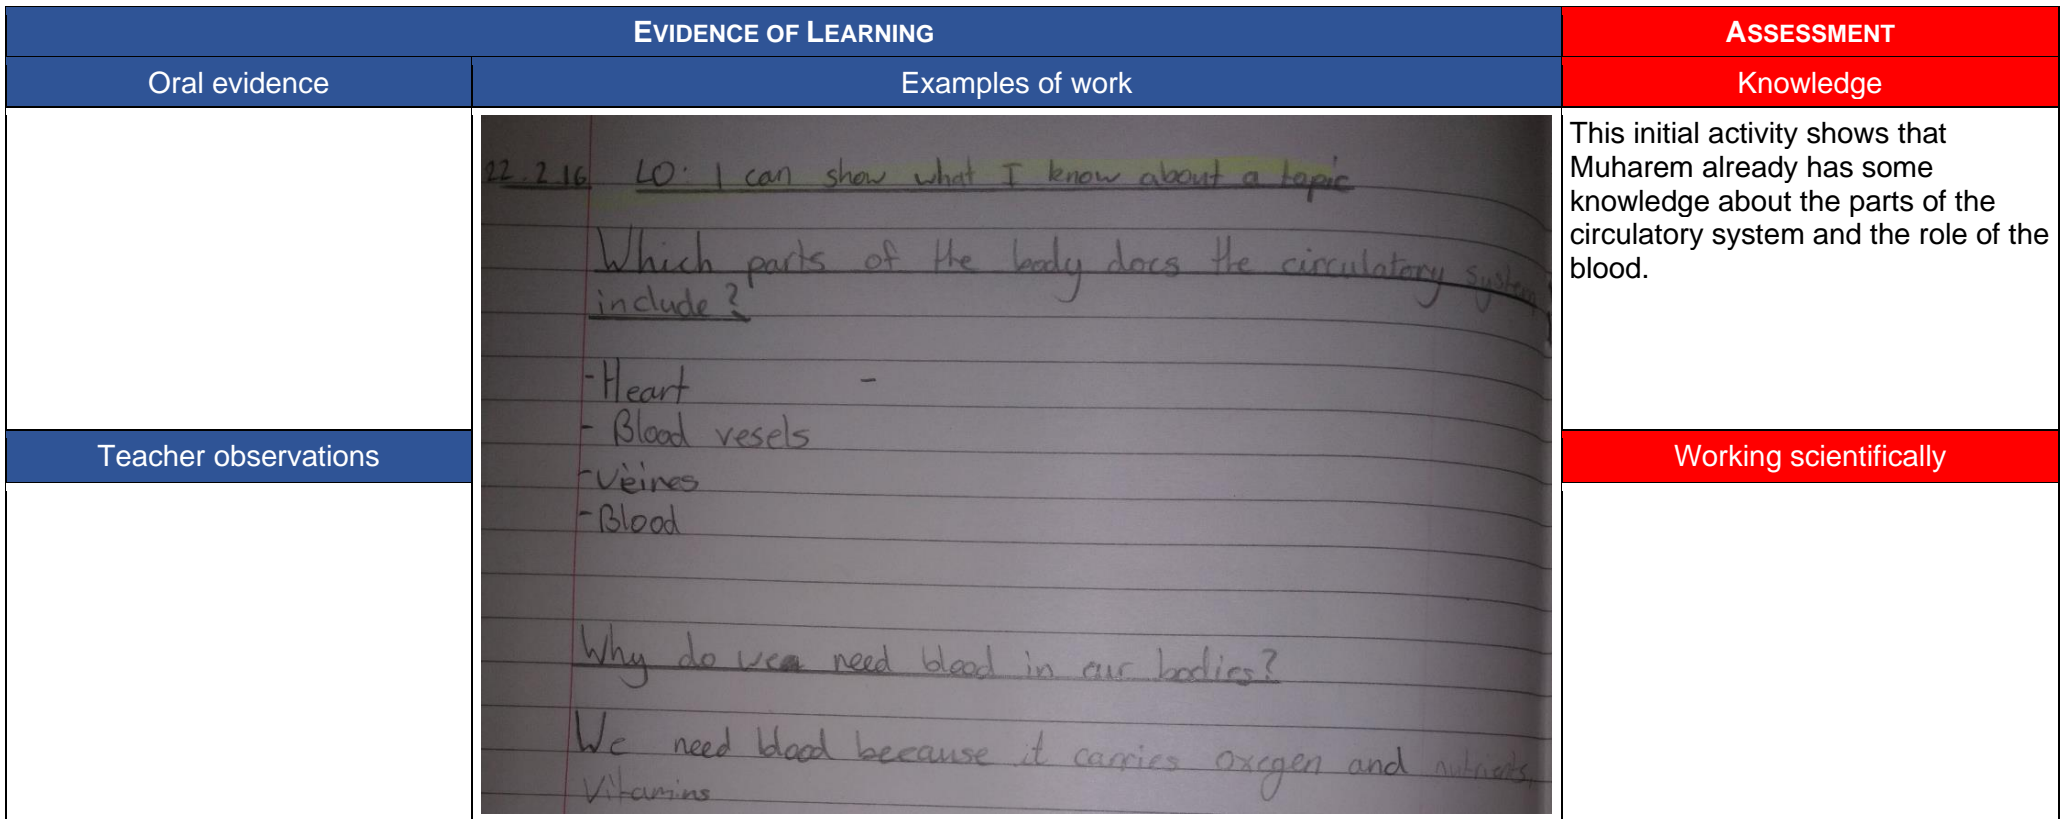 EVIDENCE OF LEARNING
ASSESSMENT
Oral evidence
Examples of work
Knowledge
22.2.16 LO: I can show what I know about a topic
Which parts of the body does the circulatory system
include?
- Heart -
- Blood vesels
- Veines
- Blood
Why do we need blood in our bodies?
We need blood because it carries oxegen and nutrients,
Vitamins
This initial activity shows that
Muharem already has some
knowledge about the parts of the
circulatory system and the role of the
blood.
Teacher observations
Working scientifically